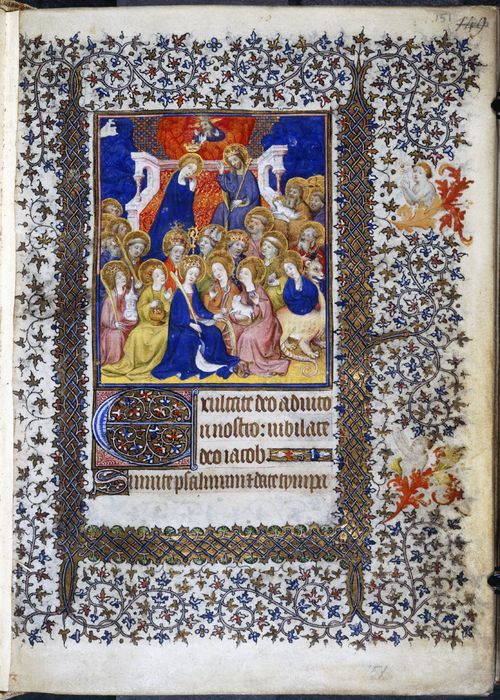 151 149
Exultate deo adiuto
ri nostro: iubilate
deo iacob
Sumite psalmum ⁊ date tympa